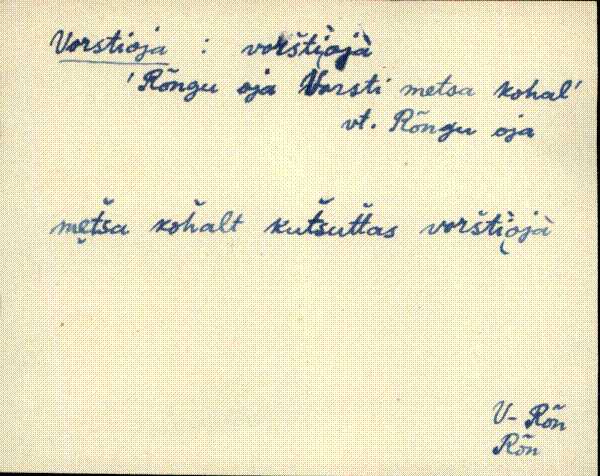 Vorstioja : vorštiòjà
'Rõngu oja Vorsti metsa kohal'
vt. Rõngu oja
metša kohalt kutšuttas vorštiòjà
V- Rõn
Rõn